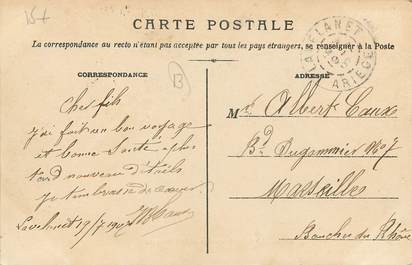 15+
CARTE POSTALE
La correspondance au recto n'étant pas acceptée par tous les pays étrangers, se renseigner à la Poste
LAVELANET
ARIEGE
CORRESPONDANCE
13
ADRESSE
Cher fils
J'ai fait un bon voyage
et bonne Santé a plus
tard nouveau détails
Je t'embrasse de coeur
Lavelanet 19/7 190
Mr Albert Caux
Bd Dugommier No 7
Marseille
Bouches du Rhône